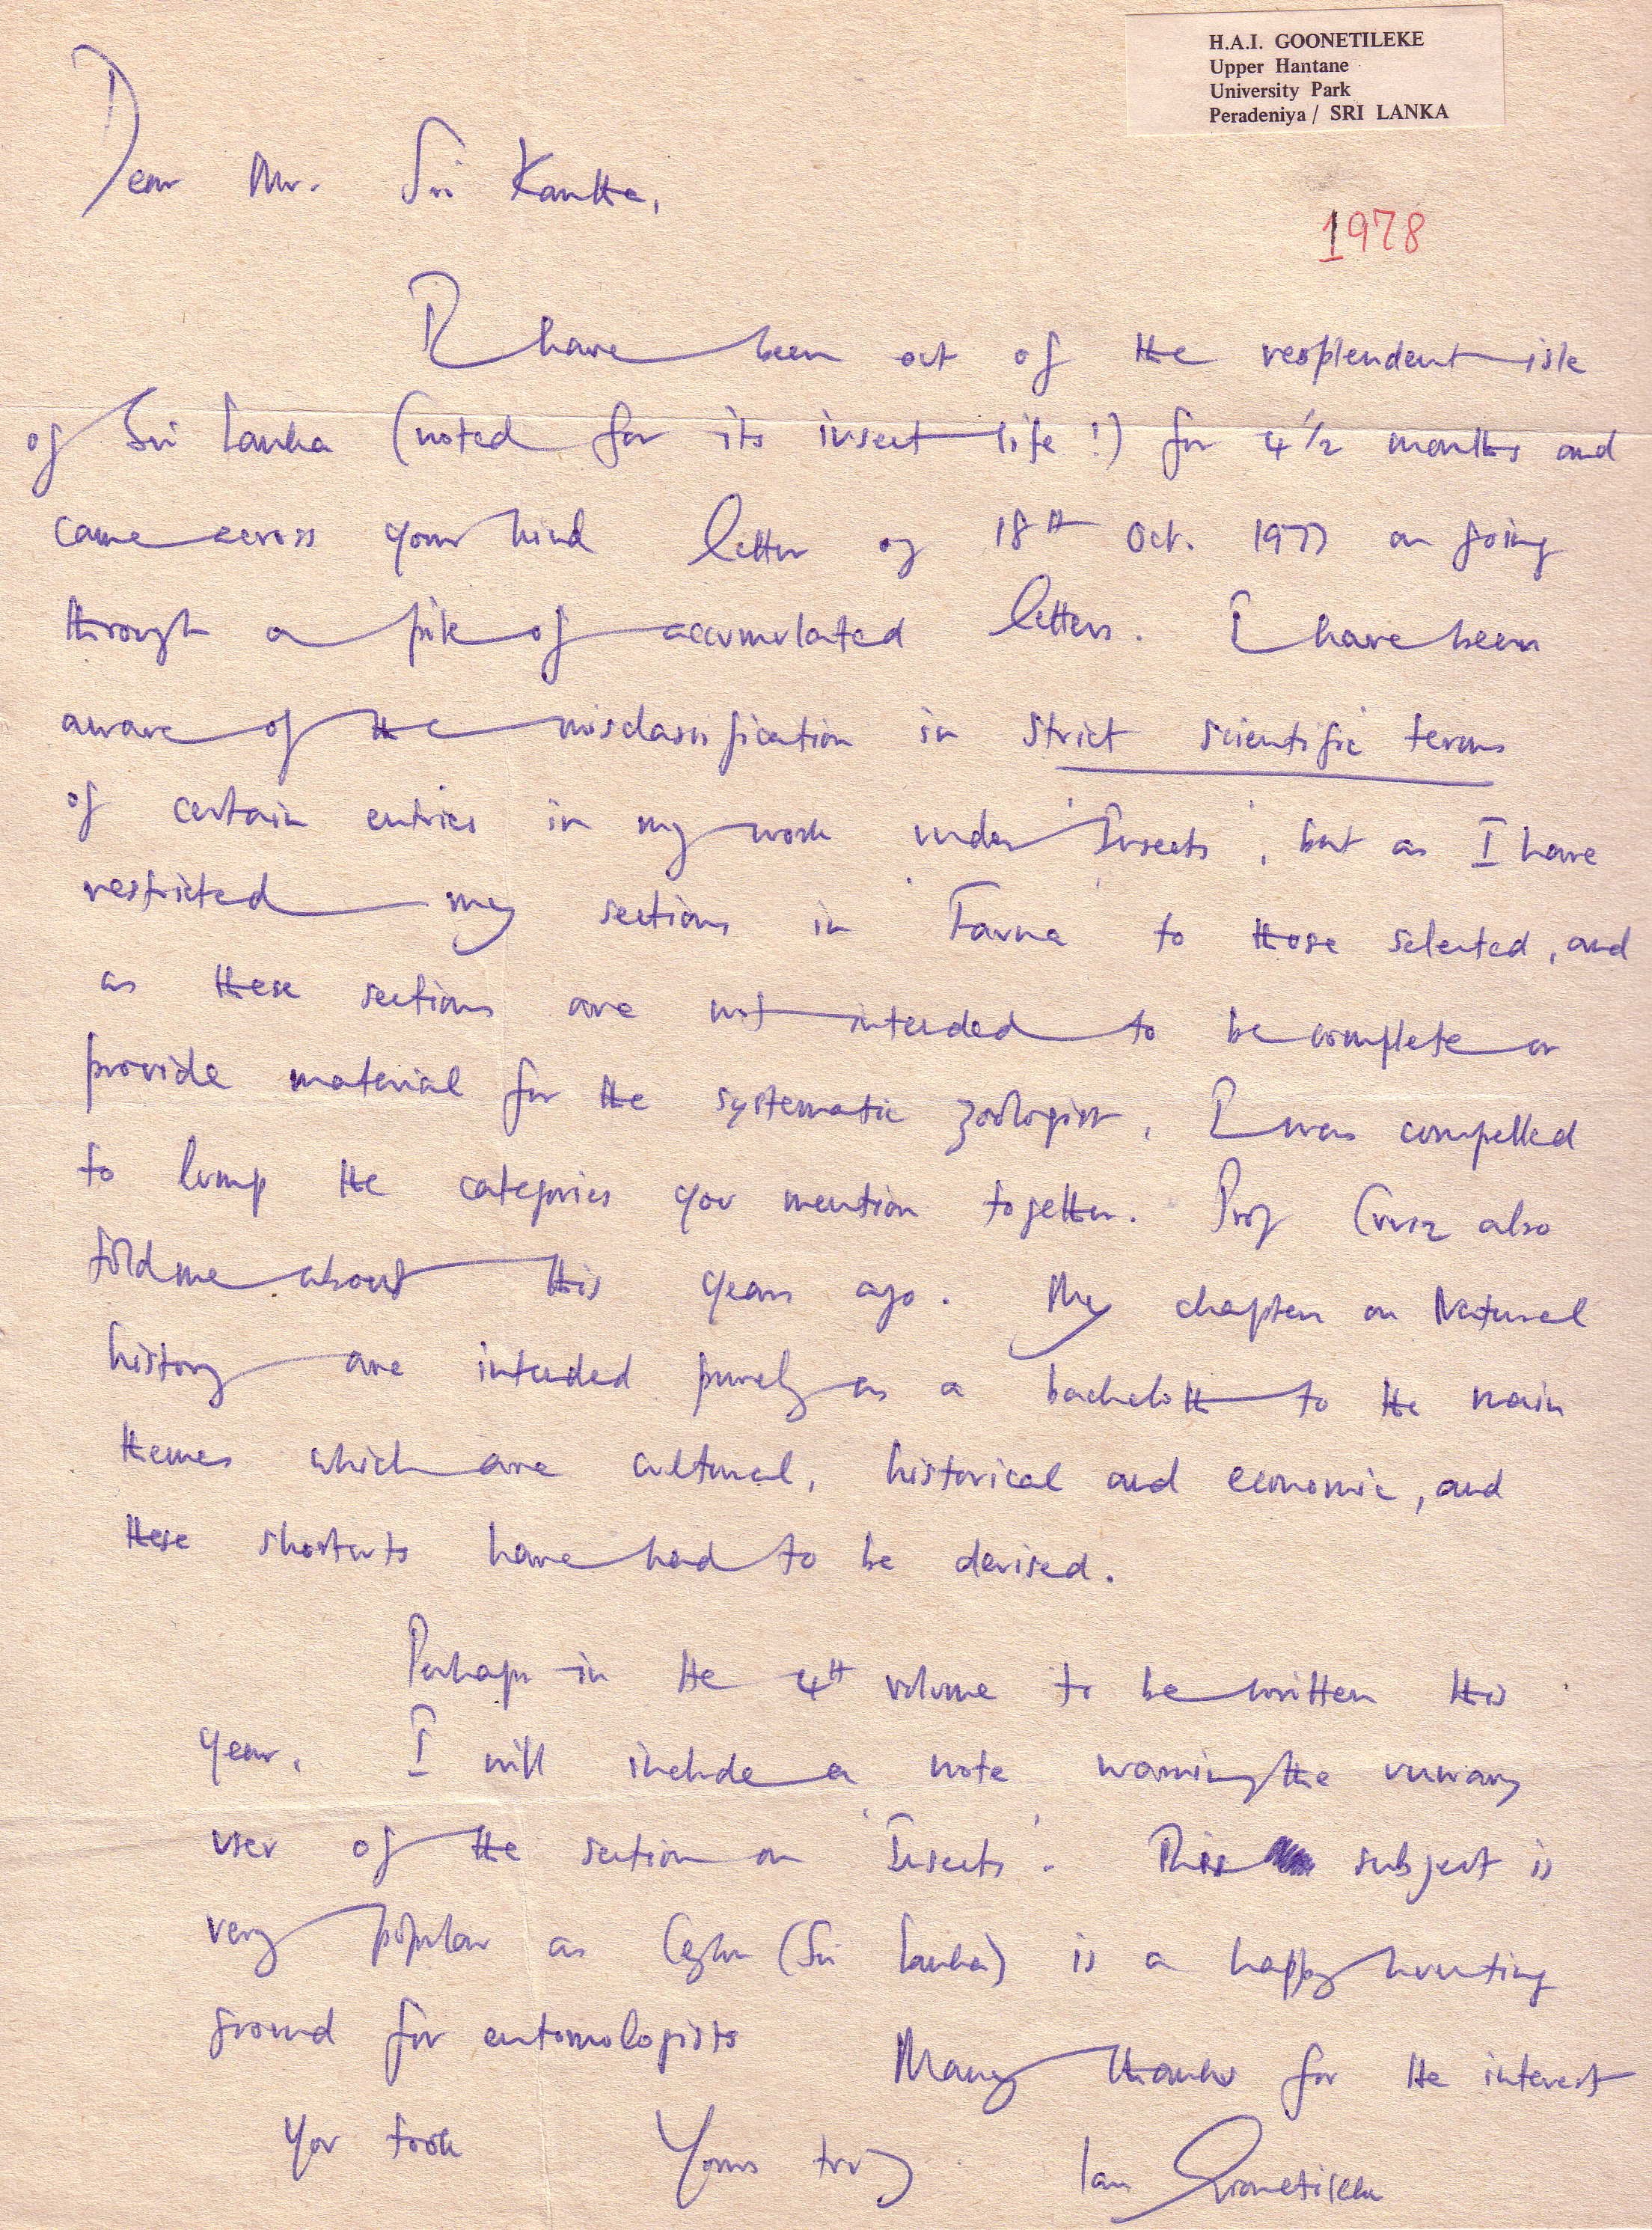 H.A.I. GOONETILEKE
Upper Hantane
University Park
Peradeniya / SRI LANKA
Dear Mr. Sri Kantha,
1978
I have been out of the resplendent isle
of Sri Lanka (noted for its insect life!) for 4 1/2 months and
came across your kind letter of 18th Oct. 1977 on going
through a pile of accumulated letters. I have been
aware of the misclassification in strict scientific terms
of certain entries in my work under 'Insects', but as I have
restricted my sections in 'Fauna' to those selected, and
as these sections are not intended to be complete or
provide material for the systematic zoologist, I was compelled
to lump the categories you mention together. Prof Crusz also
told me about this years ago. My chapters on Natural
history are intended purely as a backcloth to the main
themes which are cultural, historical and economic, and
these shortcuts have had to be devised.
Perhaps in the 4th volume to be written this
year, I will include a note warning the unwary
user of the section on 'Insects'. This subject is
very popular as Ceylon (Sri Lanka) is a happy hunting
ground for entomologists Many thanks for the interest
you took Yours truly Ian Goonetileke